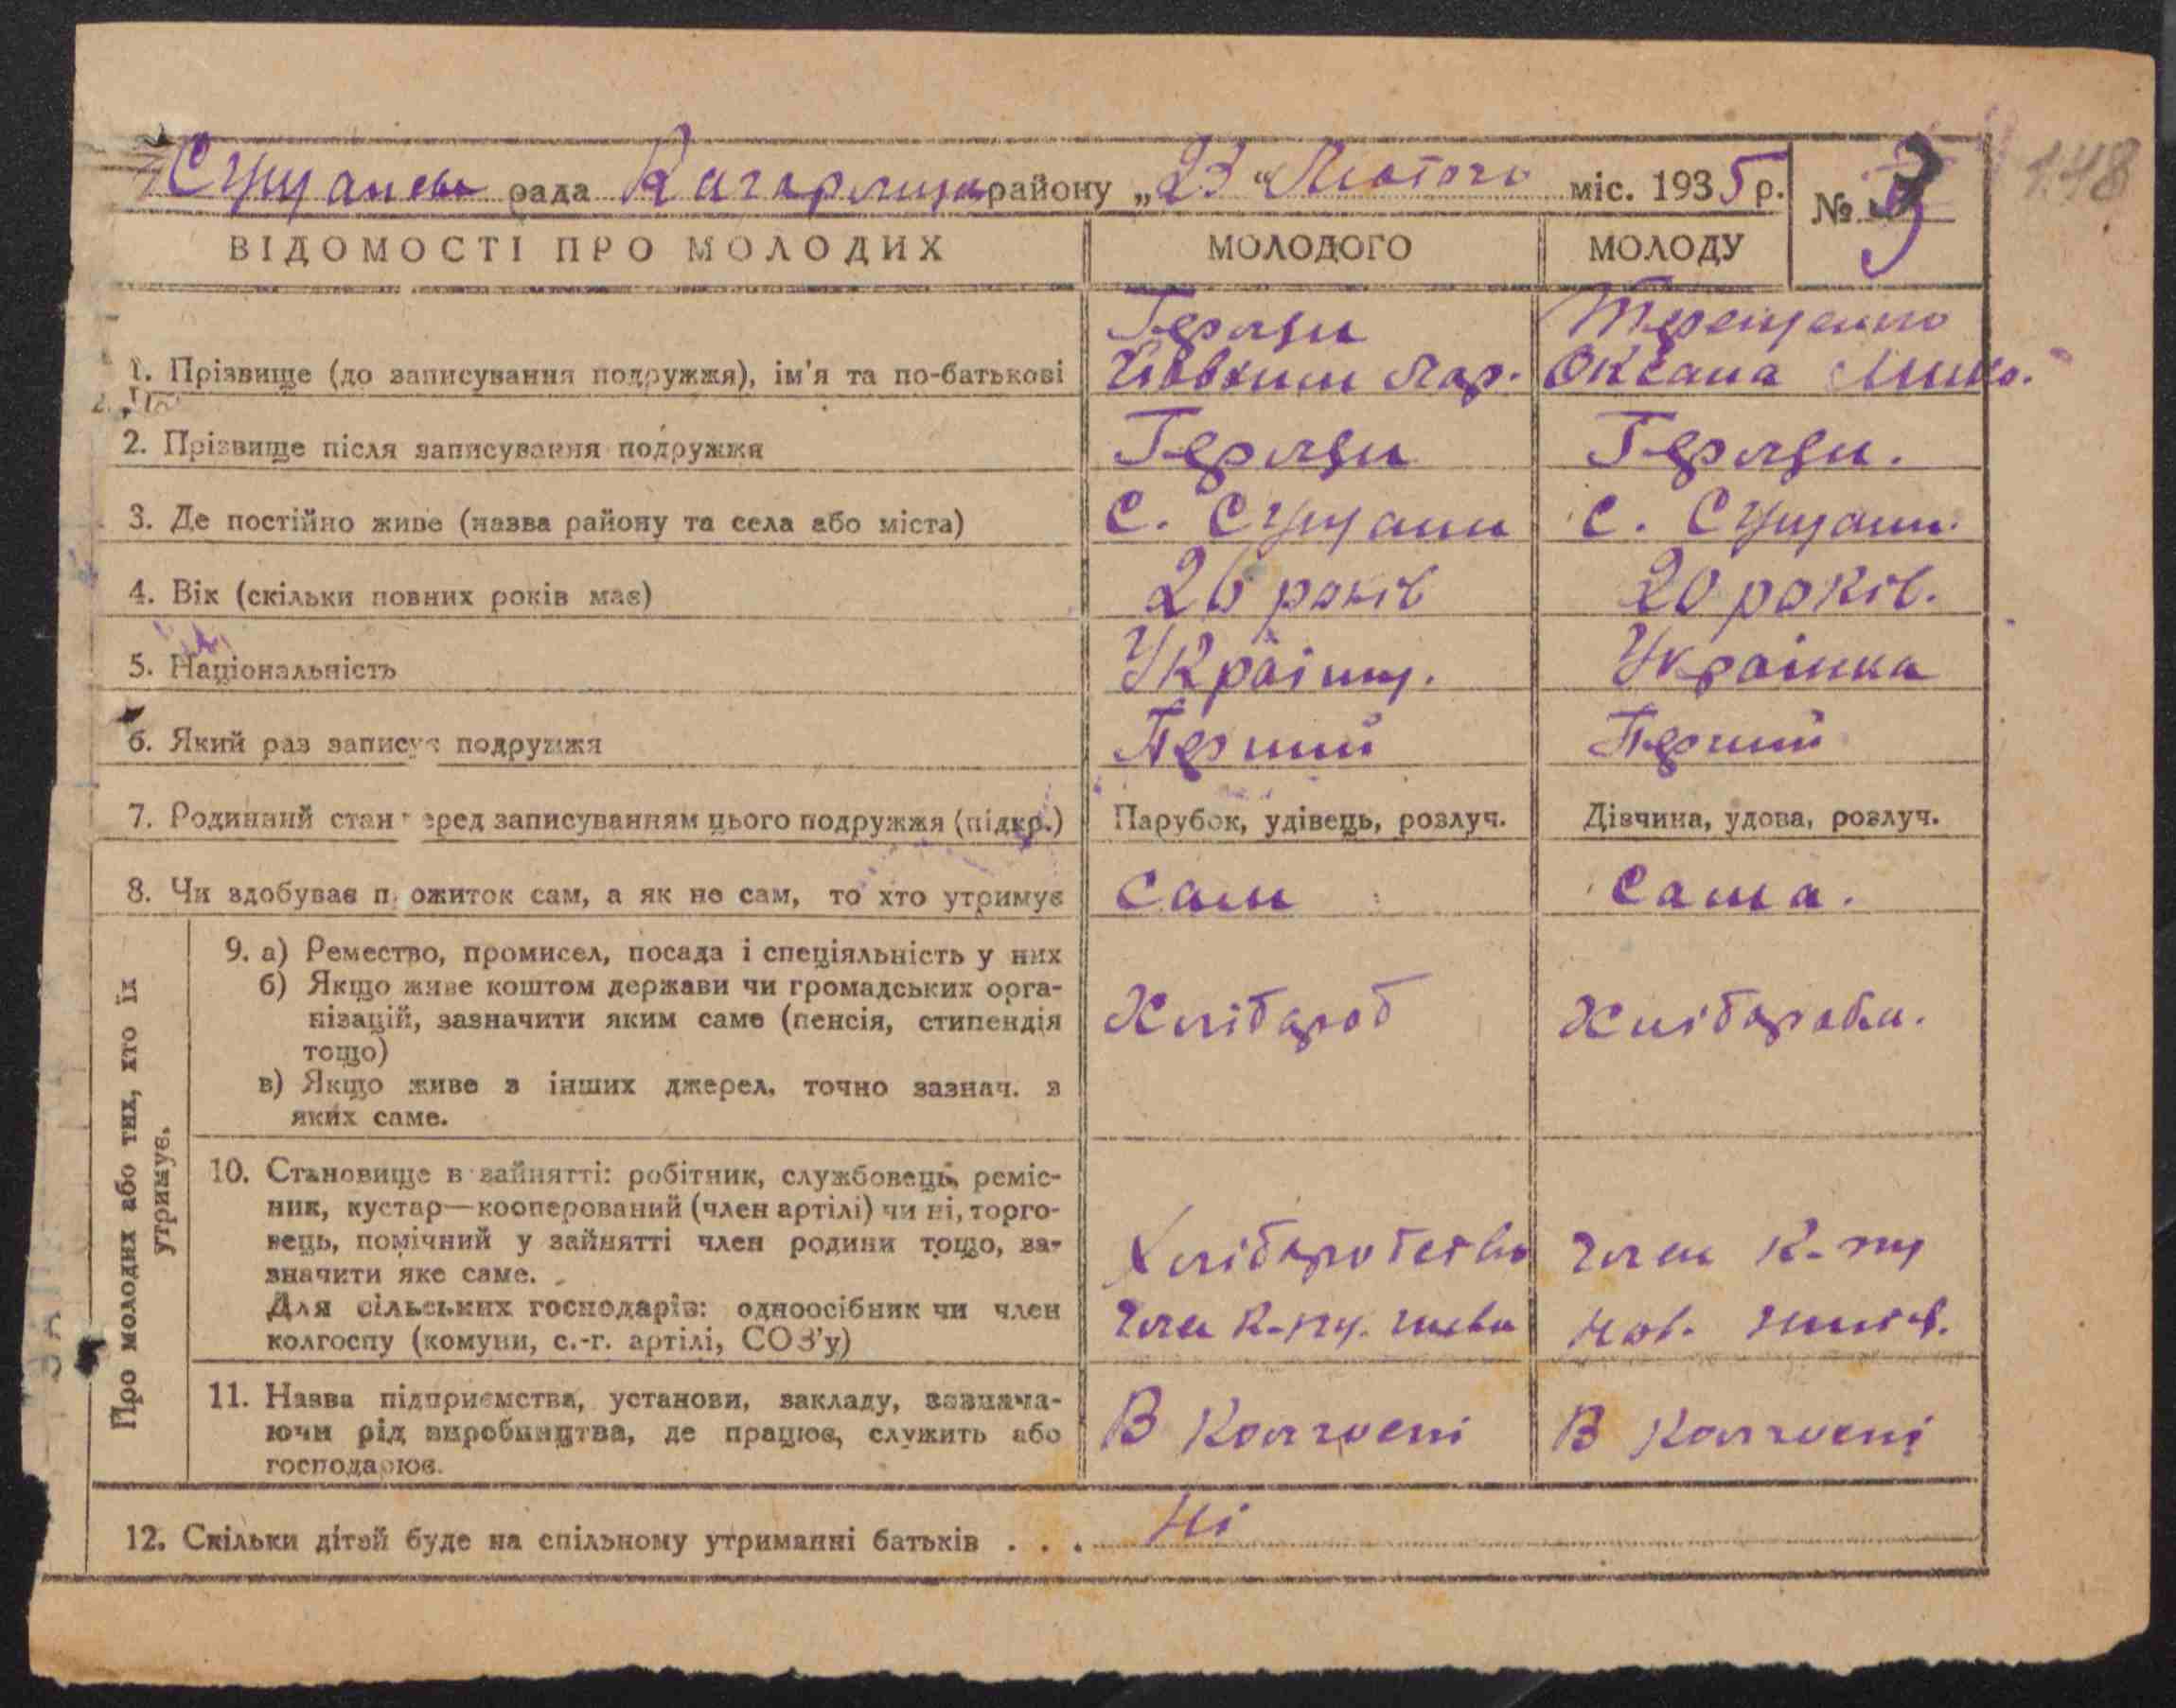 Сущанська рада Кагарлицьк району „23“ Лютого міс. 1935 р. № 3
148
ВІДОМОСТІ ПРО МОЛОДИХ МОЛОДОГО МОЛОДУ
1. Прізвище (до записування подружжя), ім'я та по-батькові
Терещенко
Оксана Мико.
2. Прізвище після записування подружжя
3. Де постійно живе (назва району та села або міста) с. Сущани с. Сущани.
4. Вік (скільки повних років має) 26 років 20 років.
5. Національність Україн. Українка
6. Який раз записує подружжя Перший Перший
7. Родинний стан перед записуванням цього подружжя (підкр.) Парубок, удівець, розлуч. Дівчина, удова, розлуч.
8. Чи здобуває прожиток сам, а як не сам, то хто утримує Сам Сама.
Про молодих або тих, хто їх утримує.
9. а) Ремество, промисел, посада і спеціяльність у них
б) Якщо живе коштом держави чи громадських орга-
нізацій, зазначити яким саме (пенсія, стипендія Хлібароб Хлібароби.
тощо)
в) Якщо живе з інших джерел, точно зазнач. з
яких саме.
10. Становище в зайнятті: робітник, службовець, реміс-
ник, кустар—кооперований (член артілі) чи ні, торго-
вець, помічний у зайнятті член родини тощо, за- Хлібаробство член к-пу
значити яке саме.
Для сільських господарів: одноосібник чи член член к-пу.
колгоспу (комуни, с.-г. артілі, СОЗ'у)
11. Назва підприємства, установи, закладу, зазнача-
ючи рід виробництва, де працює, служить або В Колгоспі В Колгоспі
господарює.
12. Скільки дітей буде на спільному утриманні батьків . . . Ні